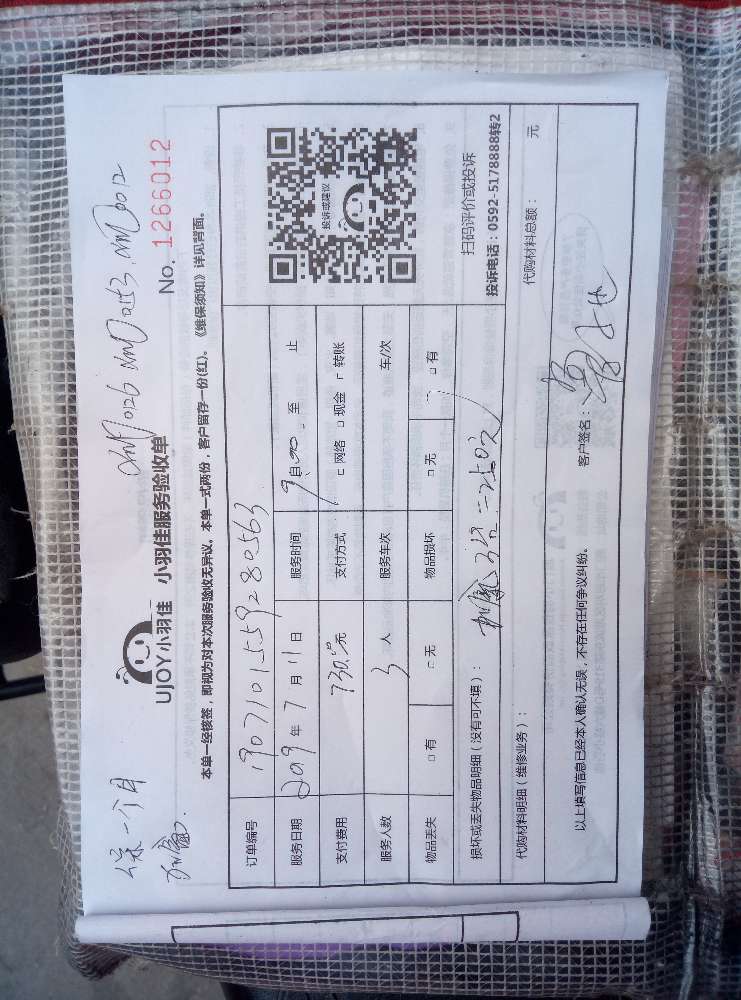 保一个月
UJOY小羽佳 小羽佳服务验收单
No. 1266012
本单一经核签，即视为对本次服务验收无异议。本单一式两份，客户留存一份(红)。《维保须知》详见背面。
订单编号 1907101559280563
服务日期 2019 年 7 月 11 日 服务时间 9 自 至 止
支付费用 730.00元 支付方式 □ 网络 □ 现金 □ 转账
服务人数 3 人 服务车次 车/次
物品丢失 □ 有 □ 无 物品损坏 □ 无 □ 有
投诉或建议
扫码评价或投诉
投诉电话：0592-5178888转2
损坏或丢失物品明细（没有可不填）：
代购材料明细（维修业务）： 代购材料总额： 元
以上填写信息已经本人确认无误，不存在任何争议纠纷。 客户签名：